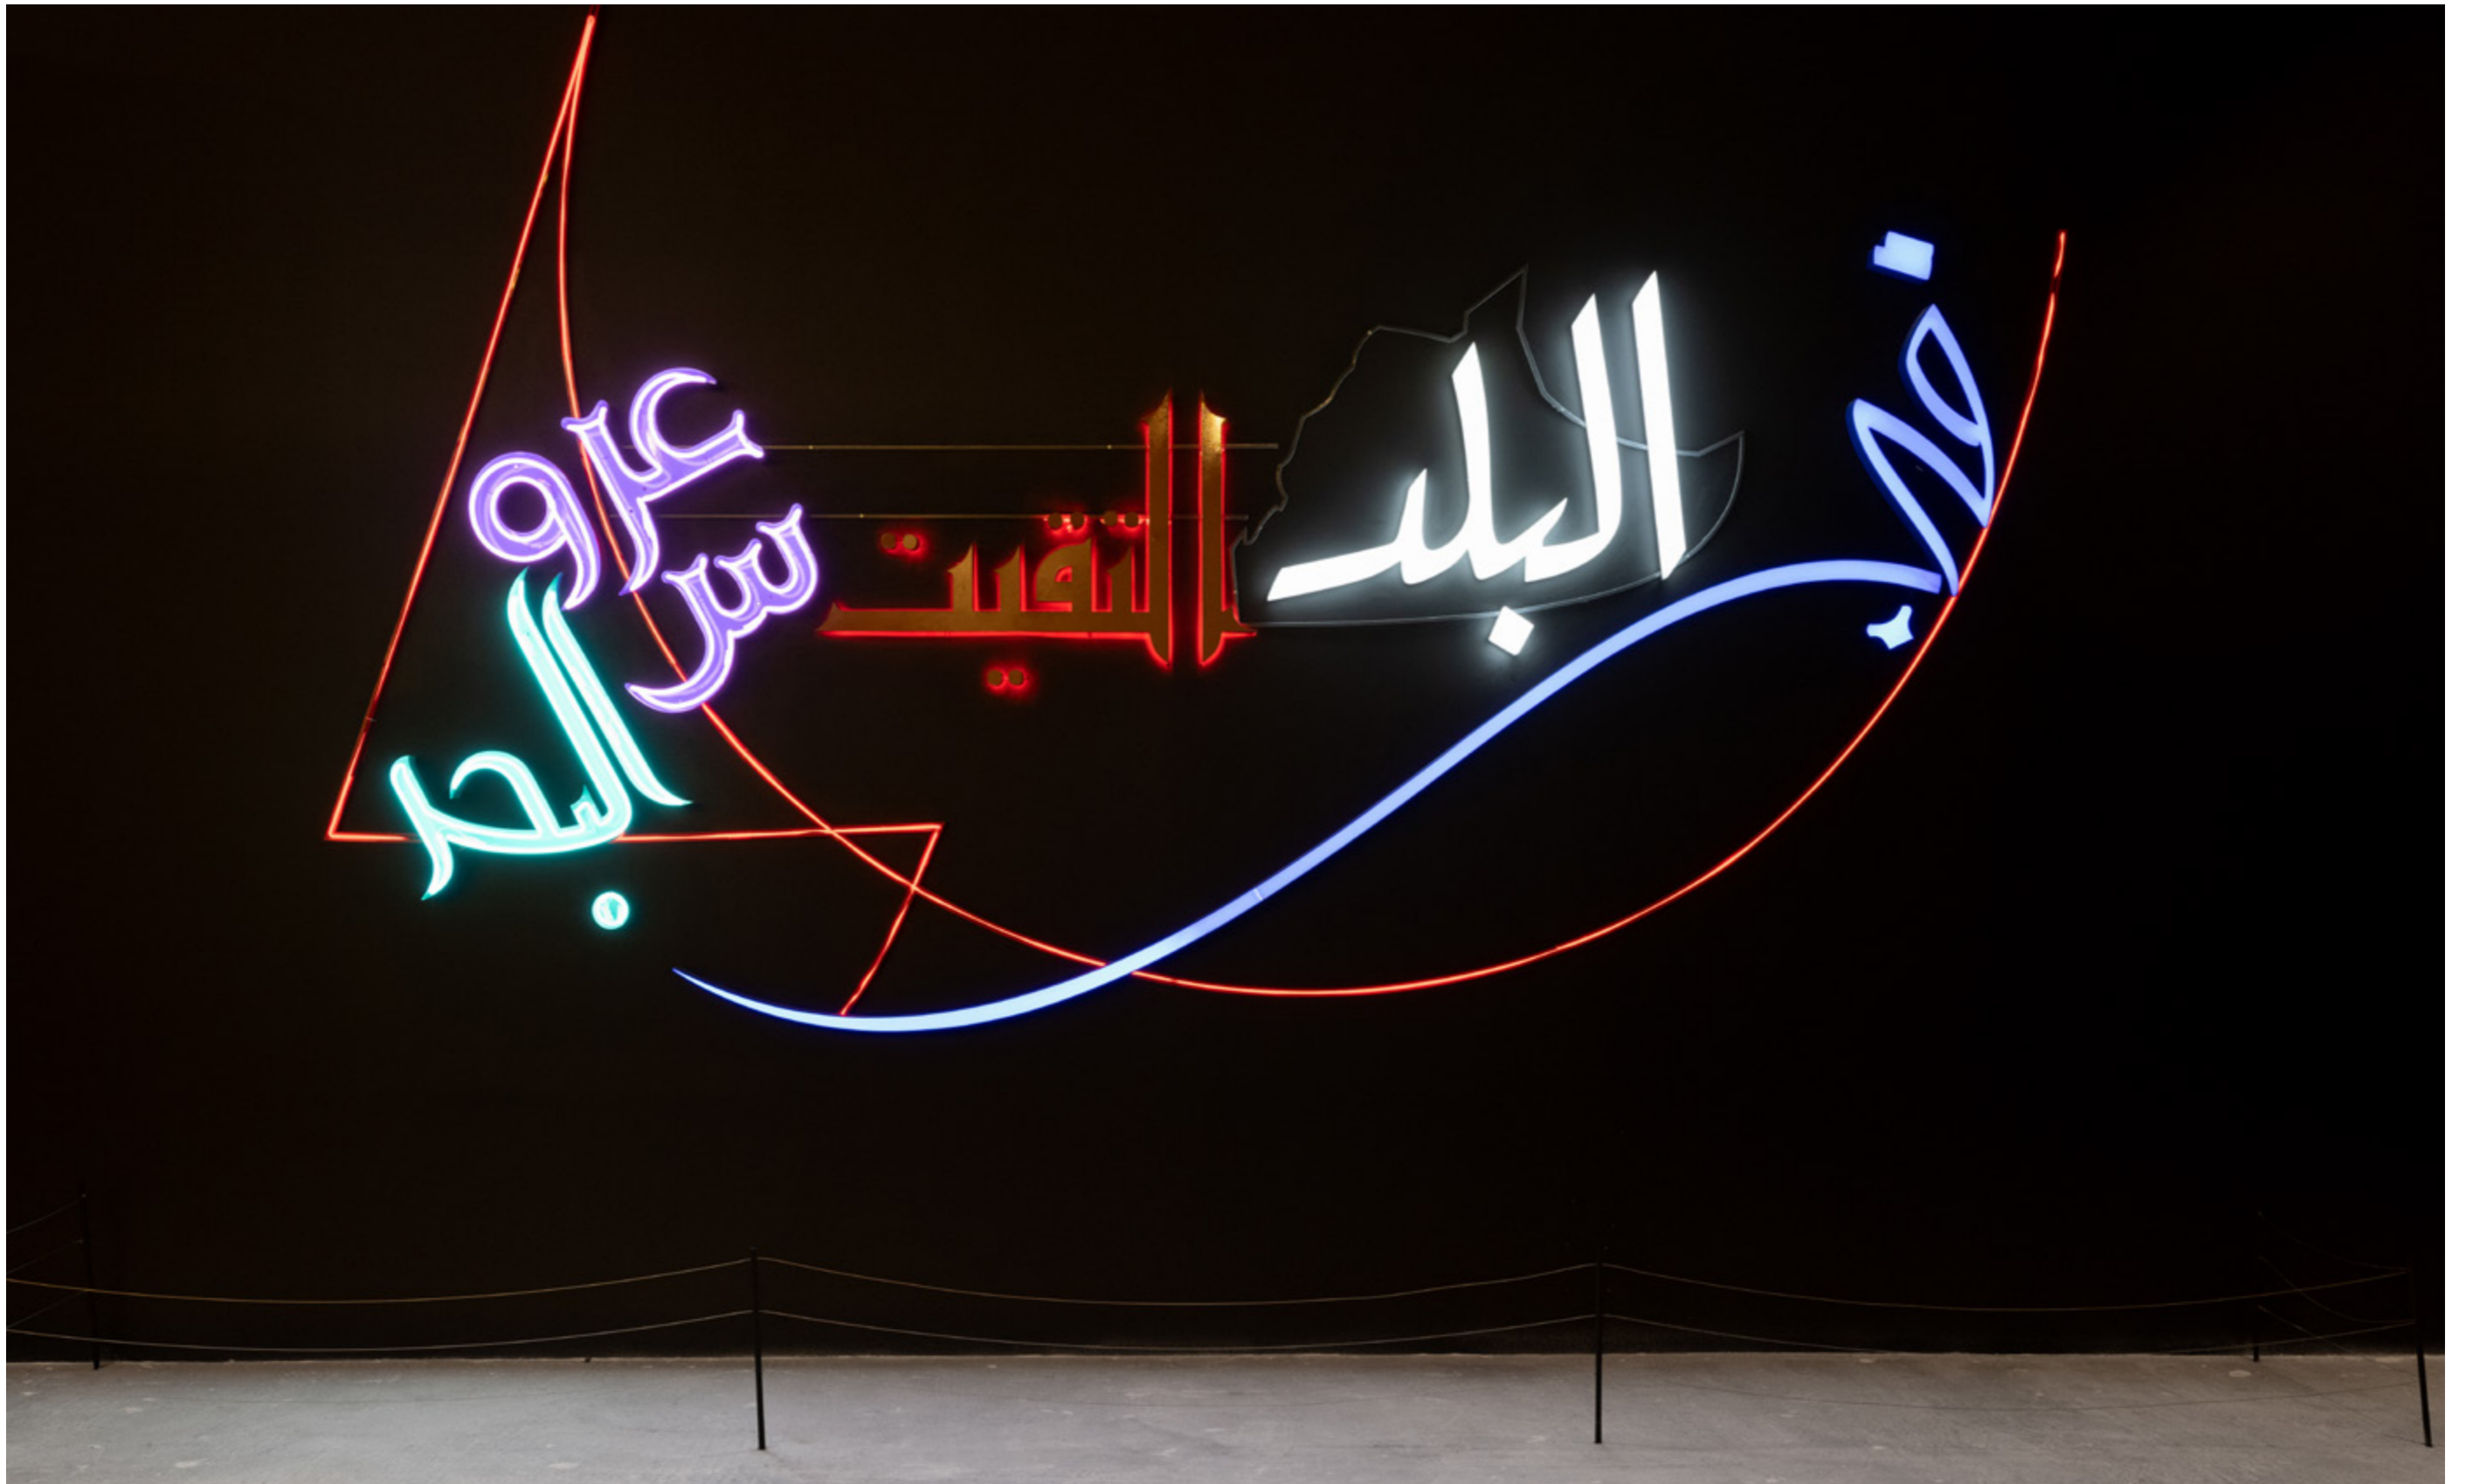 في البلد التقيت عروس البحر